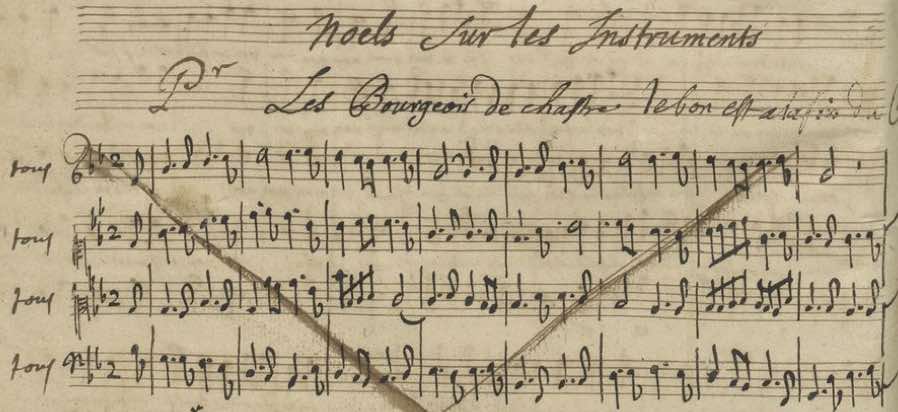 Noels sur les Instruments
Pr
Les Bourgeois de chastre le bon est a la fin du
tous
2
tous
2
tous
2
tous
2